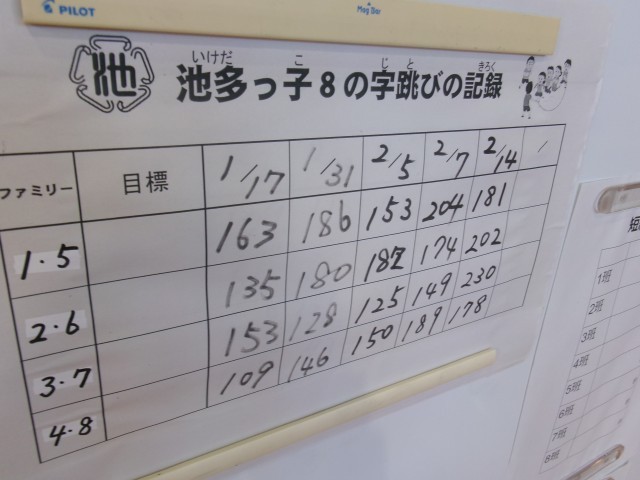 PILOT
Mag Bar
池
池多っ子８の字跳びの記録
いけだ こ じ と きろく
ファミリー 目標 1/17 1/31 2/5 2/7 2/14 /
1・5 163 186 153 204 181
2・6 135 180 182 174 202
3・7 153 128 125 149 230
4・8 109 146 150 189 178
短
1班
2班
3班
4班
5班
6班
7班
8班